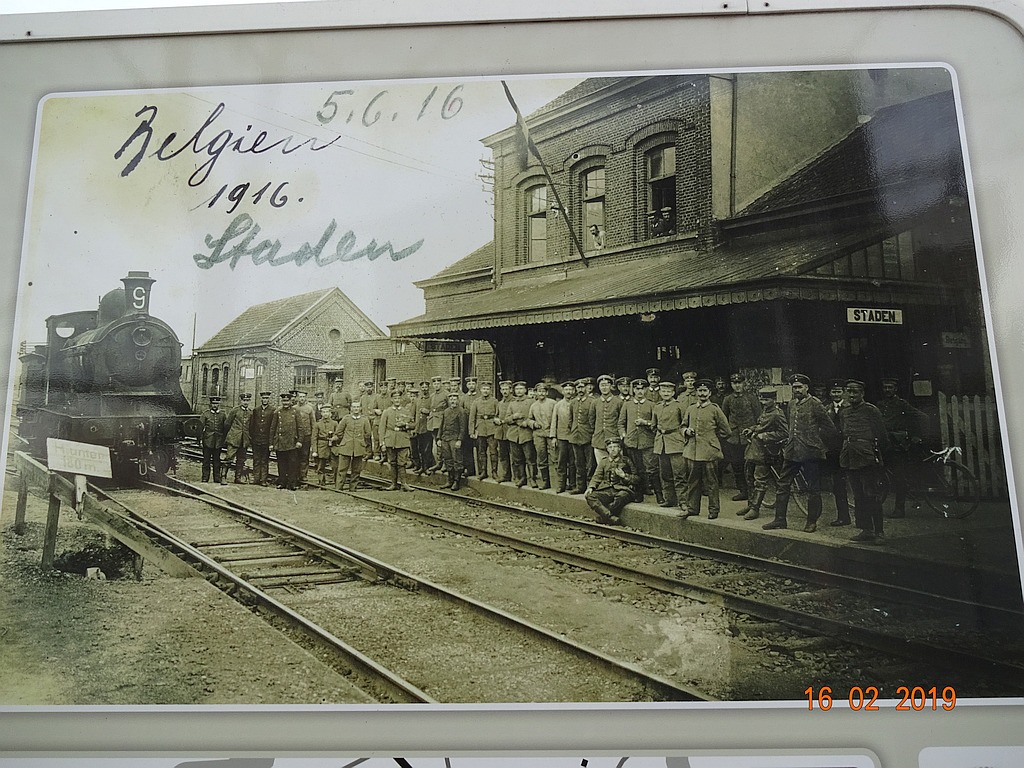 5.6.16
Belgien
1916.
Staden
9
STADEN.
150 m
16 02 2019